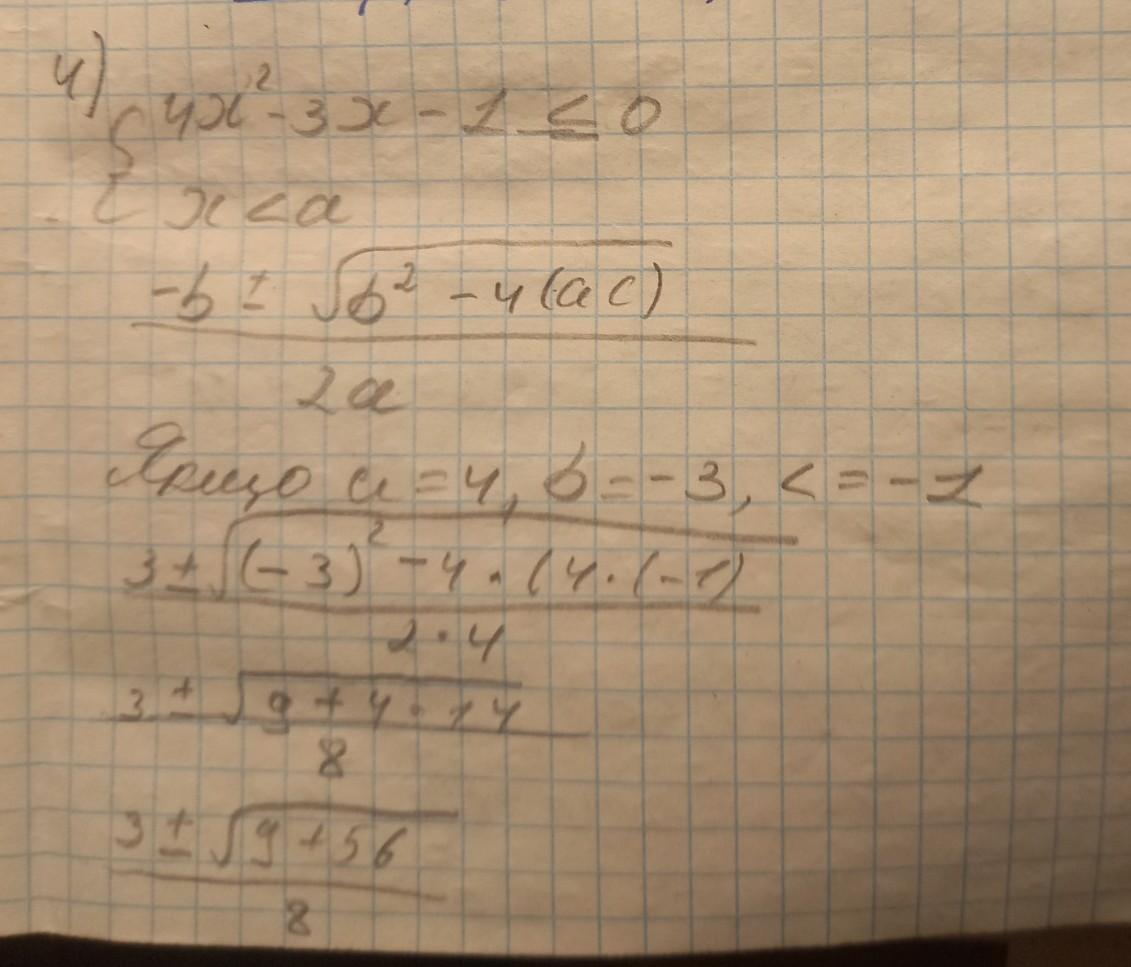 4)
{ 4x² - 3x - 1 ≤ 0
x < a
-b ± √(b² - 4(ac))
2a
Якщо a = 4, b = -3, c = -1
3 ± √((-3)² - 4 · (4 · (-1)
2 · 4
3 ± √(9 + 4 · 14)
8
3 ± √(9 + 56)
8